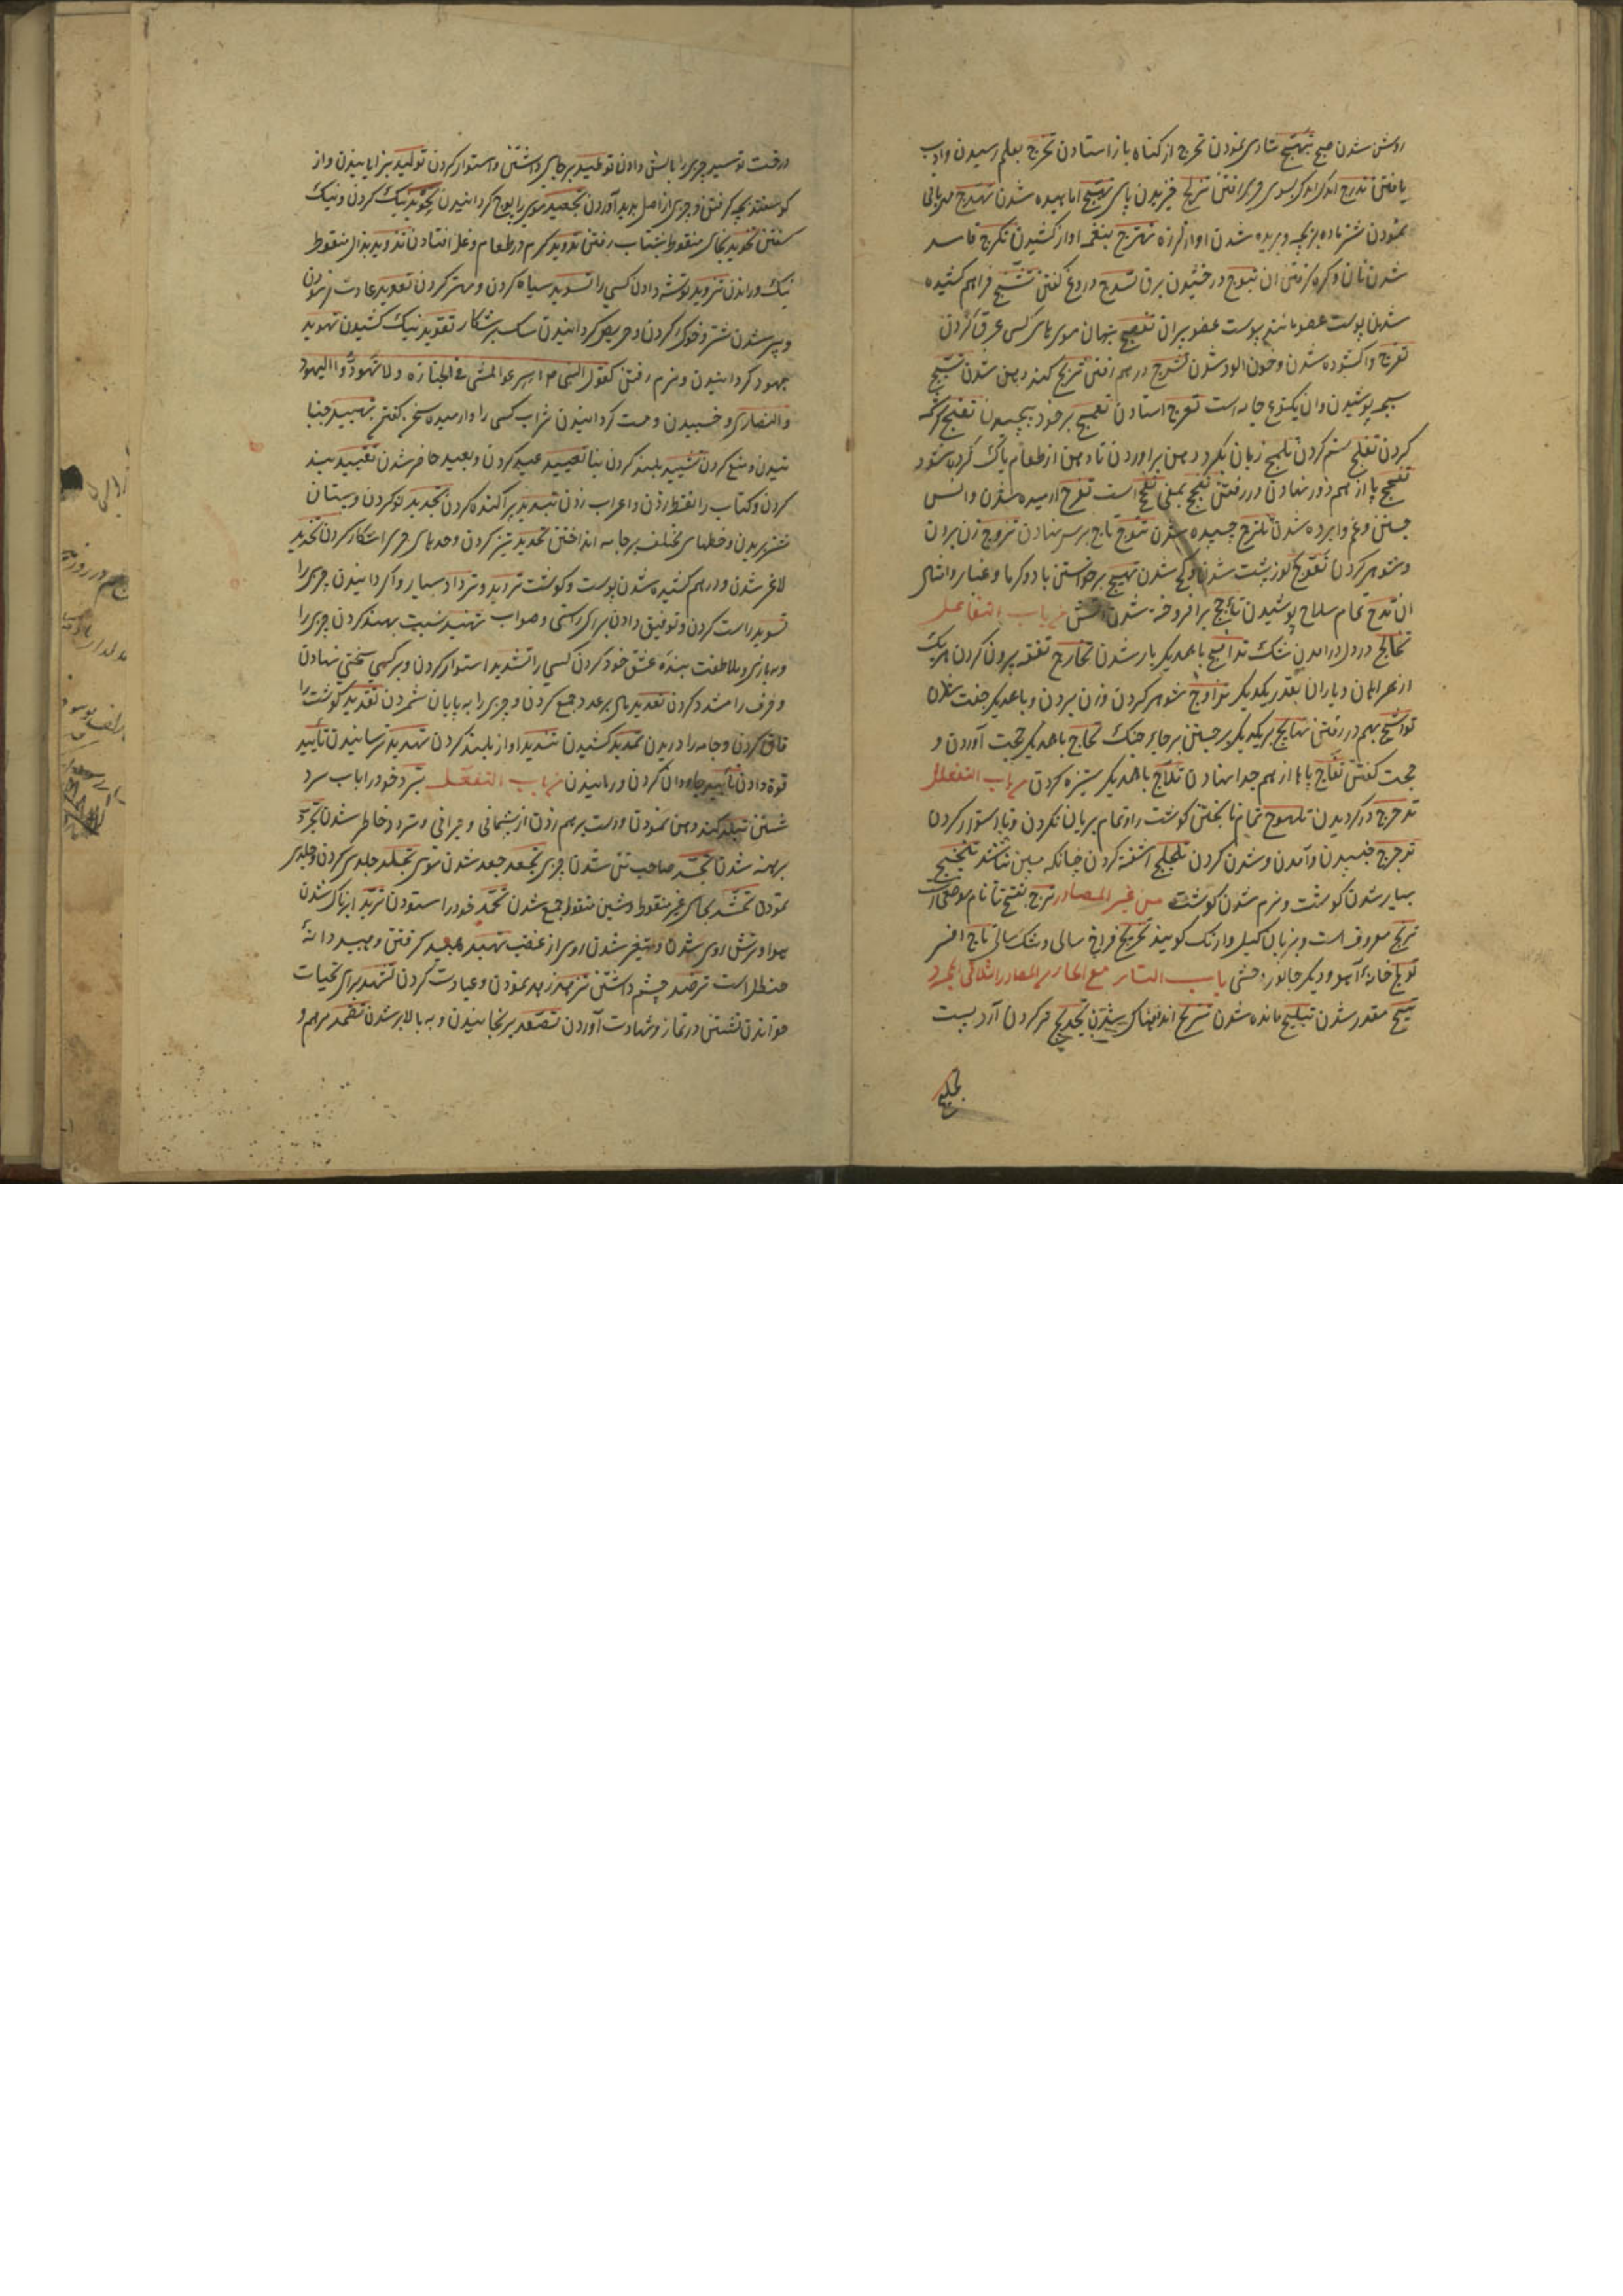 روشن شدن صبح تبهج شادی نمودن تحرج از کناه باز استادن تخرج بعلم رسیدن وادب
یافتن تدرج اندک اندک بسوی چیزی رفتن تزلج خزیدن پای تهبج اماهیده شدن تهدج مهربانی
نمودن شتر ماده بر بچه و بریده شدن اواز لرزه تهزج بنغمه اواز کشیدن تکرج فاسد
شدن نان و کره کرفتن ان تبوج درخشیدن برق تسدج دروغ کفتن تشنج فراهم کشیده
شدن پوست عضو مانند پوست عضو بریان پنهان موی های کس عرق کردن
تفرج واکشوده شدن و خون الود شدن تشرج درهم رفتن کهنه شدن تسبج
سبجه پوشیدن وان یکنوع جامه است تعرج استادن تعمج برخود پیچیدن تغنج کرشمه
کردن تظلج ستم کردن تلمج زبان بکرد دهن براوردن تا دهن از طعام پاک کرده شود
تفحج پا از هم دور نهادن در رفتن بمعنی است تفرج ارمیده شدن وانس
جستن و غم وابرده شدن تلزج چسپیده شدن تتوج تاج بر سر نهادن تزوج زن بران
و شوهر کردن تعوج کوز پشت شدن و کج شدن تهیج برخواستن باد و کرما و غبار وامثال
ان تدجج تمام سلاح پوشیدن تاجج برافروخته شدن اتش من باب التفاعل
تخالج در دل درامدن شک تدامج با همدیکر یار شدن تخارج نفقه برون کردن هر یک
از همراهان و یاران بقدر یکدیکر تزاوج شوهر کردن و زن بردن و با همدیکر جفت شدن
تواشج بهم در رفتن تهایج بر یکدیکر برجستن برجای جنک تحاج با همدیکر حجت آوردن و
حجت کفتن تفاج پاها از هم جدا نهادن تلاج با همدیکر ستیزه کردن من باب التفعلل
تدحرج در کردیدن تلهوج تمام نا پختن کوشت را و تمام بریان نکردن و نا استوار کردن
ترجرج جنبیدن و آمدن و شدن کردن تلجلج اشفته کردن چنانکه مبین نباشد
بسیار شدن کوشت و نرم شدن کوشت من غیر المصادر ترج بفتح تا نام موضعی است
ترنج معروف است و بزبان کیلی وارنک کویند تخریج فراخ سالی و خشک سالی تاج افسر
تولج خانه آهو و دیکر جانور وحشی باب التاء مع الحاء من المصادر الثلاثی المجرد
تیح مقدر شدن تبلیح مانده شدن تتریح اندوهناک شدن تجدیح تر کردن آرد پست
درخت توسید چیزی را بالش دادن توطید بر جای داشتن و استوار کردن تولید بزایانیدن و از
کوسفند بچه کرفتن و چیزی از اصل پدید آوردن تجعید موی را پوج کردانیدن تجوید نیک کردن و نیک
کفتن تخوید بخای منقوط بشتاب رفتن تدوید کرم در طعام و غله افتادن تذوید بذال منقوط
نیک وراندن تزوید توشه دادن کسی را تسوید سیاه کردن و مهتر کردن تعوید عادت فرمودن
و پیر شدن شتر و خوکر کردن و حریص کردانیدن سک بر شکار تقوید نیک کشیدن تهوید
جهود کردانیدن و نرم رفتن کقول النبی اسرعوا المشی فی الجنازه ولا تهودوا الیهود
والنصاری و خسبیدن و مست کردانیدن شراب کسی را و ارمیده سخن کفتن تهیید جنبا
نیدن و منع کردن تشیید بلند کردن بنا تعیید عید کردن و بعید حاضر شدن تقیید بند
کردن و کتاب را نقطه زدن و اعراب زدن تبدید پراکنده کردن تجدید نو کردن و پستان
شتر بریدن و خطهای مختلف بر جامه انداختن تحدید تیز کردن و حدهای چیزی اشکار کردن تخدید
لاغر شدن و درهم کشیده شدن پوست و کوشت تردید و ترداد بسیار واکردانیدن چیزی را
تسدید راست کردن و توفیق دادن برای راستی و صواب تهنید نسبت بهند کردن چیزی را
و مهازی و ملاطفت بنده عشق خود کردن کسی را تشدید استوار کردن و بر کسی سختی نهادن
و حرف را مشدد کردن تعدید مال بر عدد جمع کردن و چیزی را به پایان شمردن تقدید کوشت را
قاق کردن و جامه را دریدن تمدید کشیدن تندید اواز بلند کردن تهدید ترسانیدن تأیید
قوة دادن تأبید جاودان کردن و رمانیدن من باب التفعل تبرد خود را باب سرد
شستن تبلد کند ذهن نمودن و دست برهم زدن از پشیمانی و حیرانی و متردد خاطر شدن تجرد
برهنه شدن تجسد صاحب تن شدن چیزی تجعد جعد شدن موی تجلد جلدی کردن و جلدی
نمودن تحشد بحای غیر منقوط و شین منقوط جمع شدن تحمد خود را ستودن تربد ابرناک شدن
هوا و ترش روی شدن و متغیر شدن روی از غضب تهبد هبید کرفتن و هبید دانهٔ
حنظل است ترصد چشم داشتن تزهد زهد نمودن و عبادت کردن تشهد برای تحیات
خواندن نشستن در نماز و شهادت آوردن تصعد برنجانیدن و به بالا بر شدن تضمد مرهم و